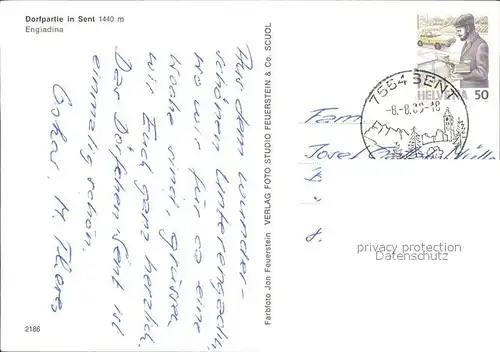 Dorfpartie in Sent 1440 m
Engiadina
Aus dem wunder-
schönen Unterengadin,
wo wir für eine
Woche sind, grüssen
wir Euch ganz herzlich.
Das Dörfchen Sent ist
einmalig schön.
2186
Farbfoto Jon Feuerstein VERLAG FOTO STUDIO FEUERSTEIN & Co. SCUOL
7554 SENT
HELVETIA 50
Fam
Josef
privacy protection
Datenschutz